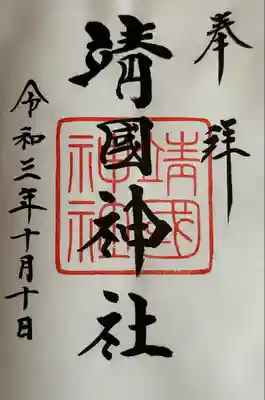 奉拝
靖國神社
靖國神社
令和三年十月十日